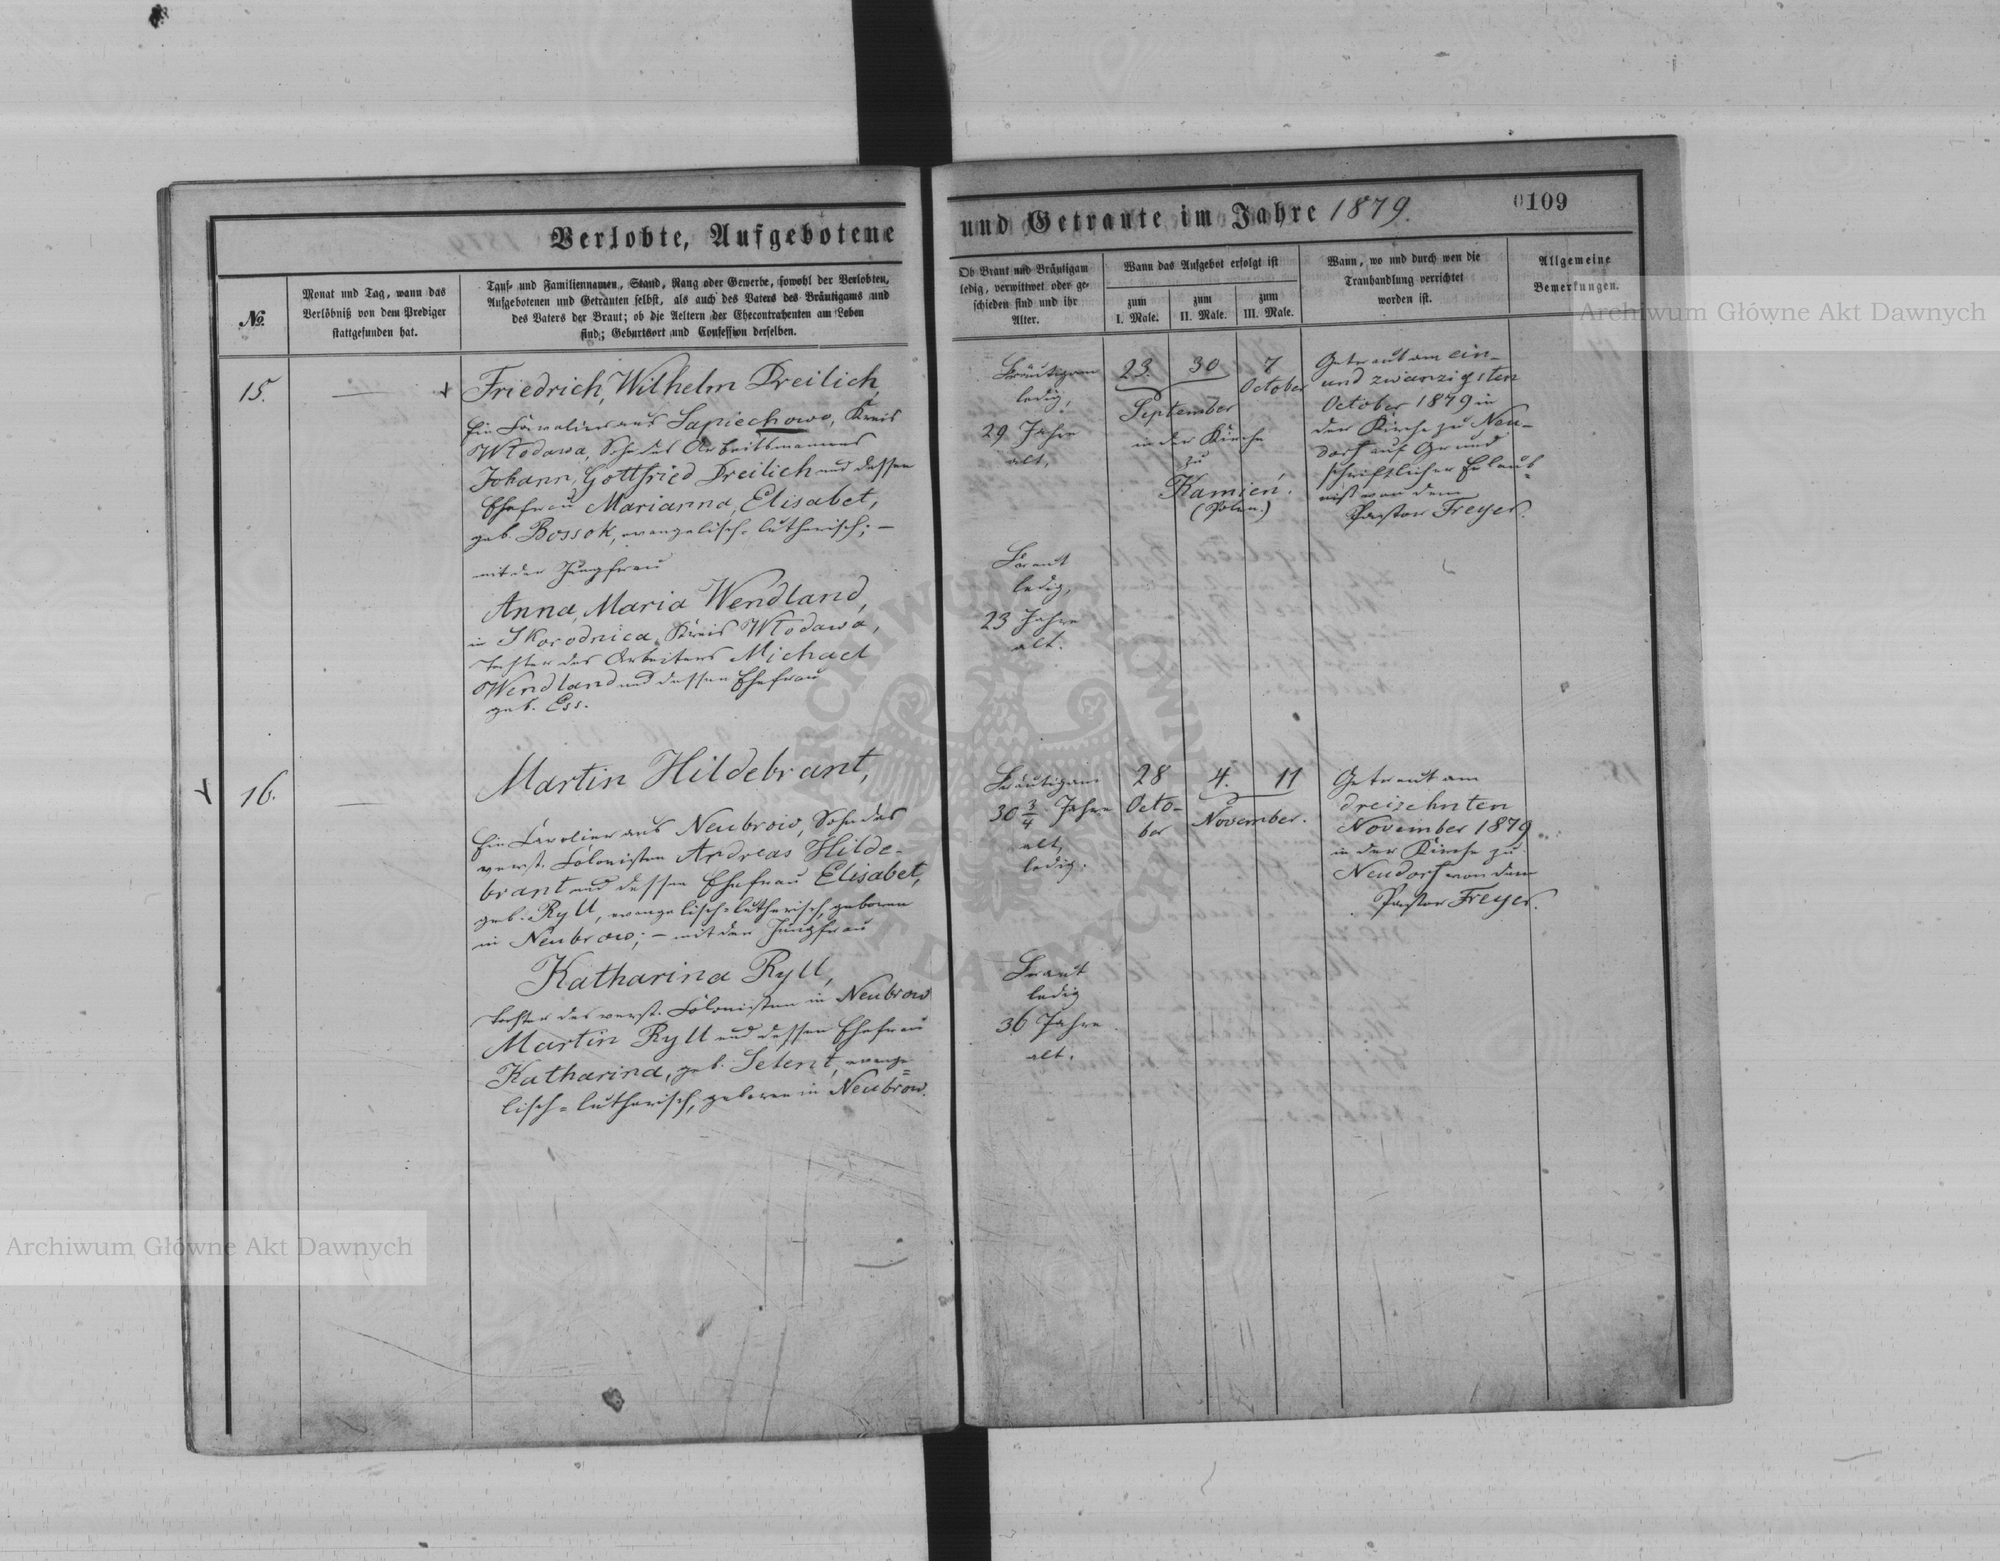 Verlobte, Aufgebotene und Getraute im Jahre 1879.
0109
№
Monat und Tag, wann das
Verlöbniß von dem Prediger
stattgefunden hat.
Tauf- und Familiennamen, Stand, Rang oder Gewerbe, sowohl der Verlobten,
Aufgebotenen und Getrauten selbst, als auch des Vaters des Bräutigams und
des Vaters der Braut; ob die Aeltern der Ehecontrahenten am Leben
sind; Geburtsort und Confession derselben.
Ob Braut und Bräutigam
ledig, verwittwet oder ge-
schieden sind und ihr
Alter.
Wann das Aufgebot erfolgt ist
zum
I. Male.
zum
II. Male.
zum
III. Male.
Wann, wo und durch wen die
Trauhandlung verrichtet
worden ist.
Allgemeine
Bemerkungen.
15.
Friedrich, Wilhelm Dreilich,
aus Sapiechowo, Kreis
Włodawa, Sohn des Arbeitsmannes
Johann, Gottfried Dreilich und dessen
Ehefrau Marianna, Elisabet,
geb. Bossok, evangelisch-lutherisch; –
mit der Jungfrau
Anna, Maria Wendland,
in Skorodnica, Kreis Włodawa,
Tochter des Arbeiters Michael
Wendland und dessen Ehefrau
geb. Ess.
Bräutigam
ledig,
29 Jahre
alt,
Braut
ledig,
23 Jahre
alt.
23. 30 7
October
September
in der Kirche
zu
Kamień.
(Polen.)
Getraut am ein-
und zwanzigsten
October 1879 in
der Kirche zu Neu-
dorf auf Grund
schriftlicher Erlaub-
niß von dem
Pastor Freyer.
16.
Martin Hildebrant,
aus Neubrow, Sohn des
verst. Colonisten Andreas Hilde-
brant und dessen Ehefrau Elisabet,
geb. Ryll, evangelisch-lutherisch, geboren
in Neubrow; – mit der Jungfrau
Katharina Ryll,
Tochter des verst. Colonisten in Neubrow
Martin Ryll und dessen Ehefrau
Katharina, geb. evange-
lisch-lutherisch, geboren in Neubrow.
Bräutigam
30 3/4 Jahre
alt,
ledig.
Braut
ledig
36 Jahre
alt.
28 4. 11
Octo-
ber
November.
Getraut am
dreizehnten
November 1879
in der Kirche zu
Neudorf von dem
Pastor Freyer.
Archiwum Główne Akt Dawnych
Archiwum Główne Akt Dawnych
ARCHIWUM GŁÓWNE AKT DAWNYCH